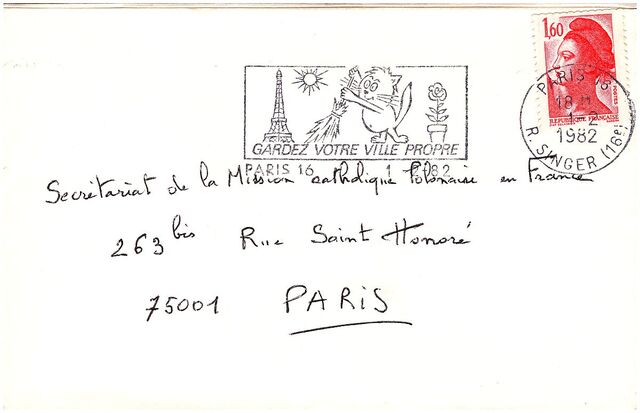 1,60
REPUBLIQUE FRANÇAISE
PARIS 16
18 H
1 - 2
1982
R. SINGER (16e)
GARDEZ VOTRE VILLE PROPRE
PARIS 16 1 -2 82
Secrétariat de la Mission catholique Polonaise en France
263 bis Rue Saint Honoré
75001 PARIS